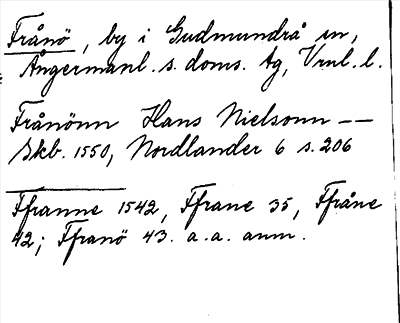 Frånö, by i Gudmundrå sn,
Ångermanl. s. doms. tg, Vrnl. l.
Frånönn Hans Nielsonn --
Skb. 1550, Nordlander 6 s. 206
Ffranne 1542, Ffrane 35, Ffråne
42; Ffranö 43. a.a. anm.